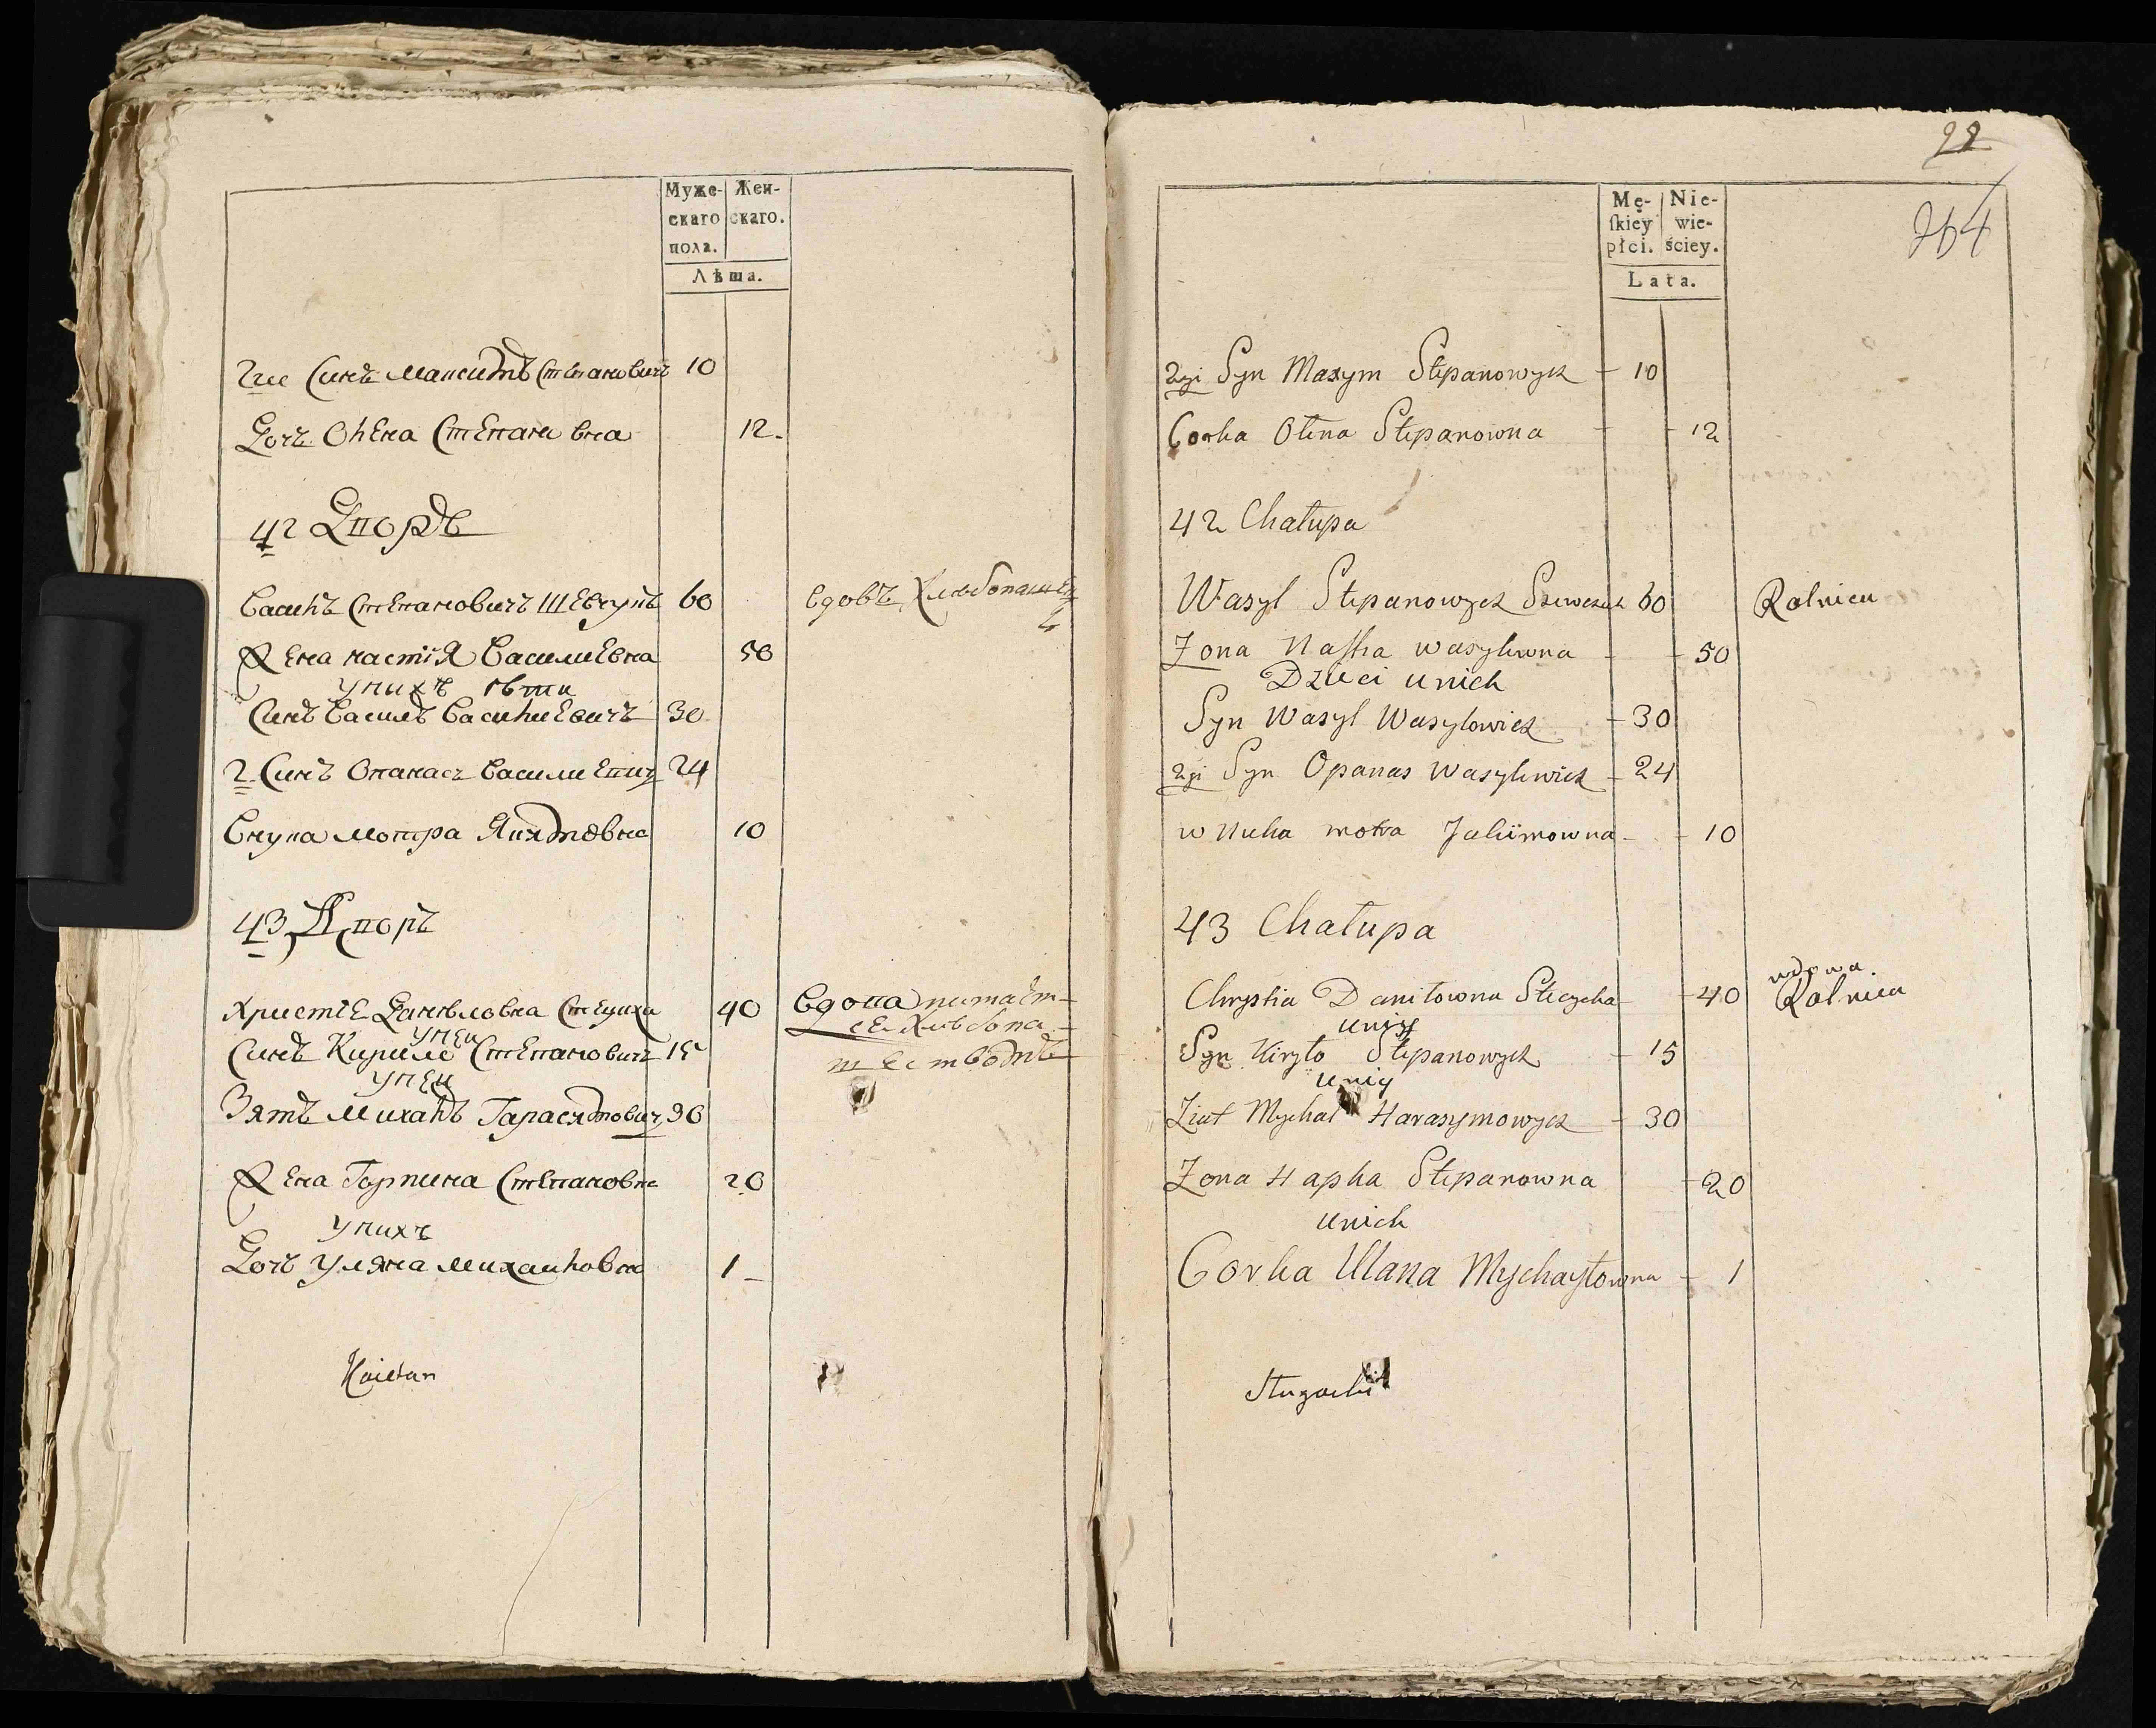 Муже- Жен-
скаго скаго.
пола.
Лѣта.
2ге Синъ Максимъ Степановичъ 10
Дочъ Олена Степановна 12.
42 Дворъ
Василъ Степановичъ Шевчукъ 60 вдовъ Хлебопашец
Жена настія Василиевна 50
у них дѣти
Синъ Василъ Василиевичъ 30
2 Синъ Опанасъ Василиевич 24
Внука мотра Якимовна 10
43 Дворъ
Христіе Даниловна Стециха 40 вдова питает-
се Хлѣбопа-
у ней
Синъ Кирило Степановичъ 15 шеством
у ней
Зятъ Михалъ Гарасимович 30
Жена Горпина Степановна 20
у нихъ
Дочъ Уляна Михайловна 1
Kaietan
22
264
Mę- Nie-
ſkiey wie-
płci. ściey.
Lata.
2gi Syn Maxym Stepanowycz 10
Corka Olena Stepanowna 12
42 Chałupa
Wasyl Stepanowycz Szewczuk 60 Rolnicu
Zona Nastia wasylewna 50
Dzieci unich
Syn Wasyl Wasylowicz 30
2gi Syn Opanas Wasylewicz 24
wnuka motra Jakimowna 10
43 Chałupa
wdowa
Chrystia Daniłowna Stecycha 40 Rolnicu
uniy
Syn Kiryło Stepanowycz 15
uniy
Ziat Mychal Harasymowycz 30
Zona Hapka Stepanowna 20
unich
Corka Ulana Mychayłowna 1
Sługocki